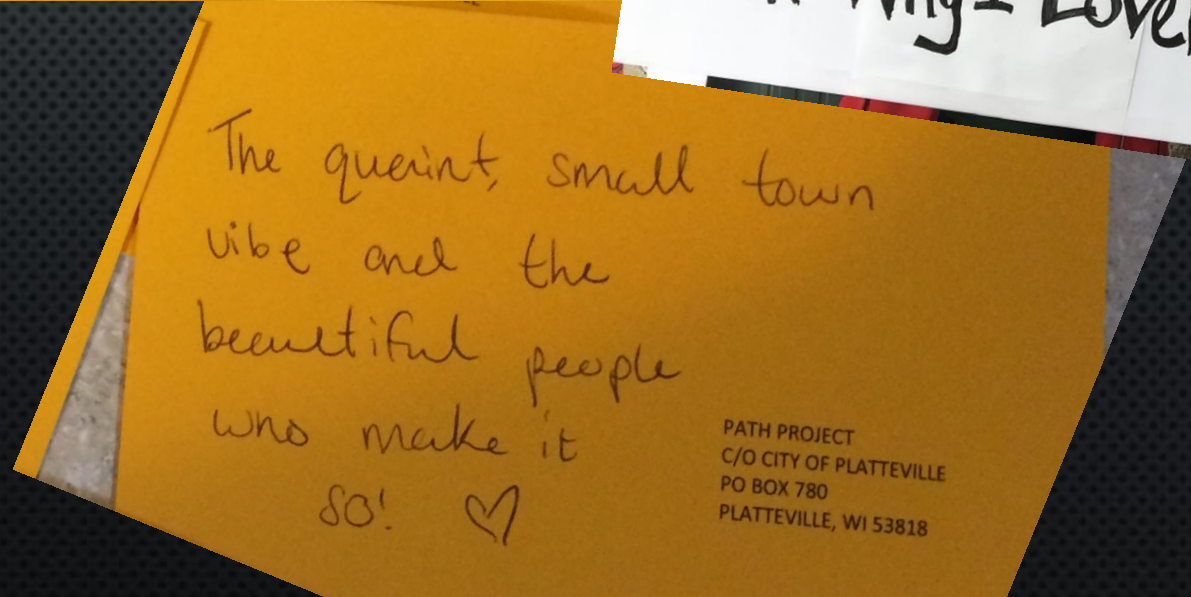 Why I Love
The quaint, small town
vibe and the
beautiful people
who make it
so! ♡
PATH PROJECT
C/O CITY OF PLATTEVILLE
PO BOX 780
PLATTEVILLE, WI 53818